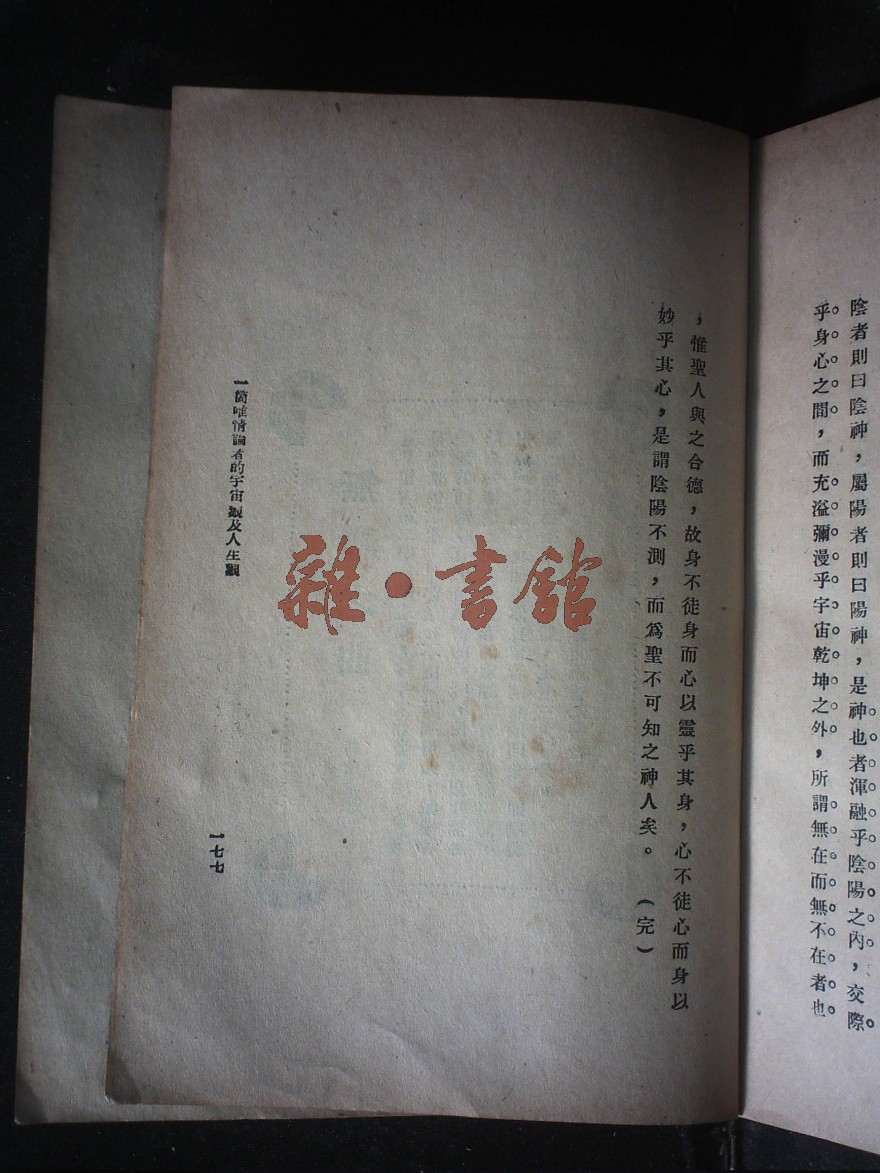 陰者則曰陰神，屬陽者則曰陽神，是神也者渾融乎陰陽之內，交際
乎身心之間，而充溢彌漫乎宇宙乾坤之外，所謂無在而無不在者也
，惟聖人與之合德，故身不徒身而心以靈乎其身，心不徒心而身以
妙乎其心，是謂陰陽不測，而爲聖不可知之神人矣。　（完）
一箇唯情論者的宇宙觀及人生觀
一七七
雜·書館